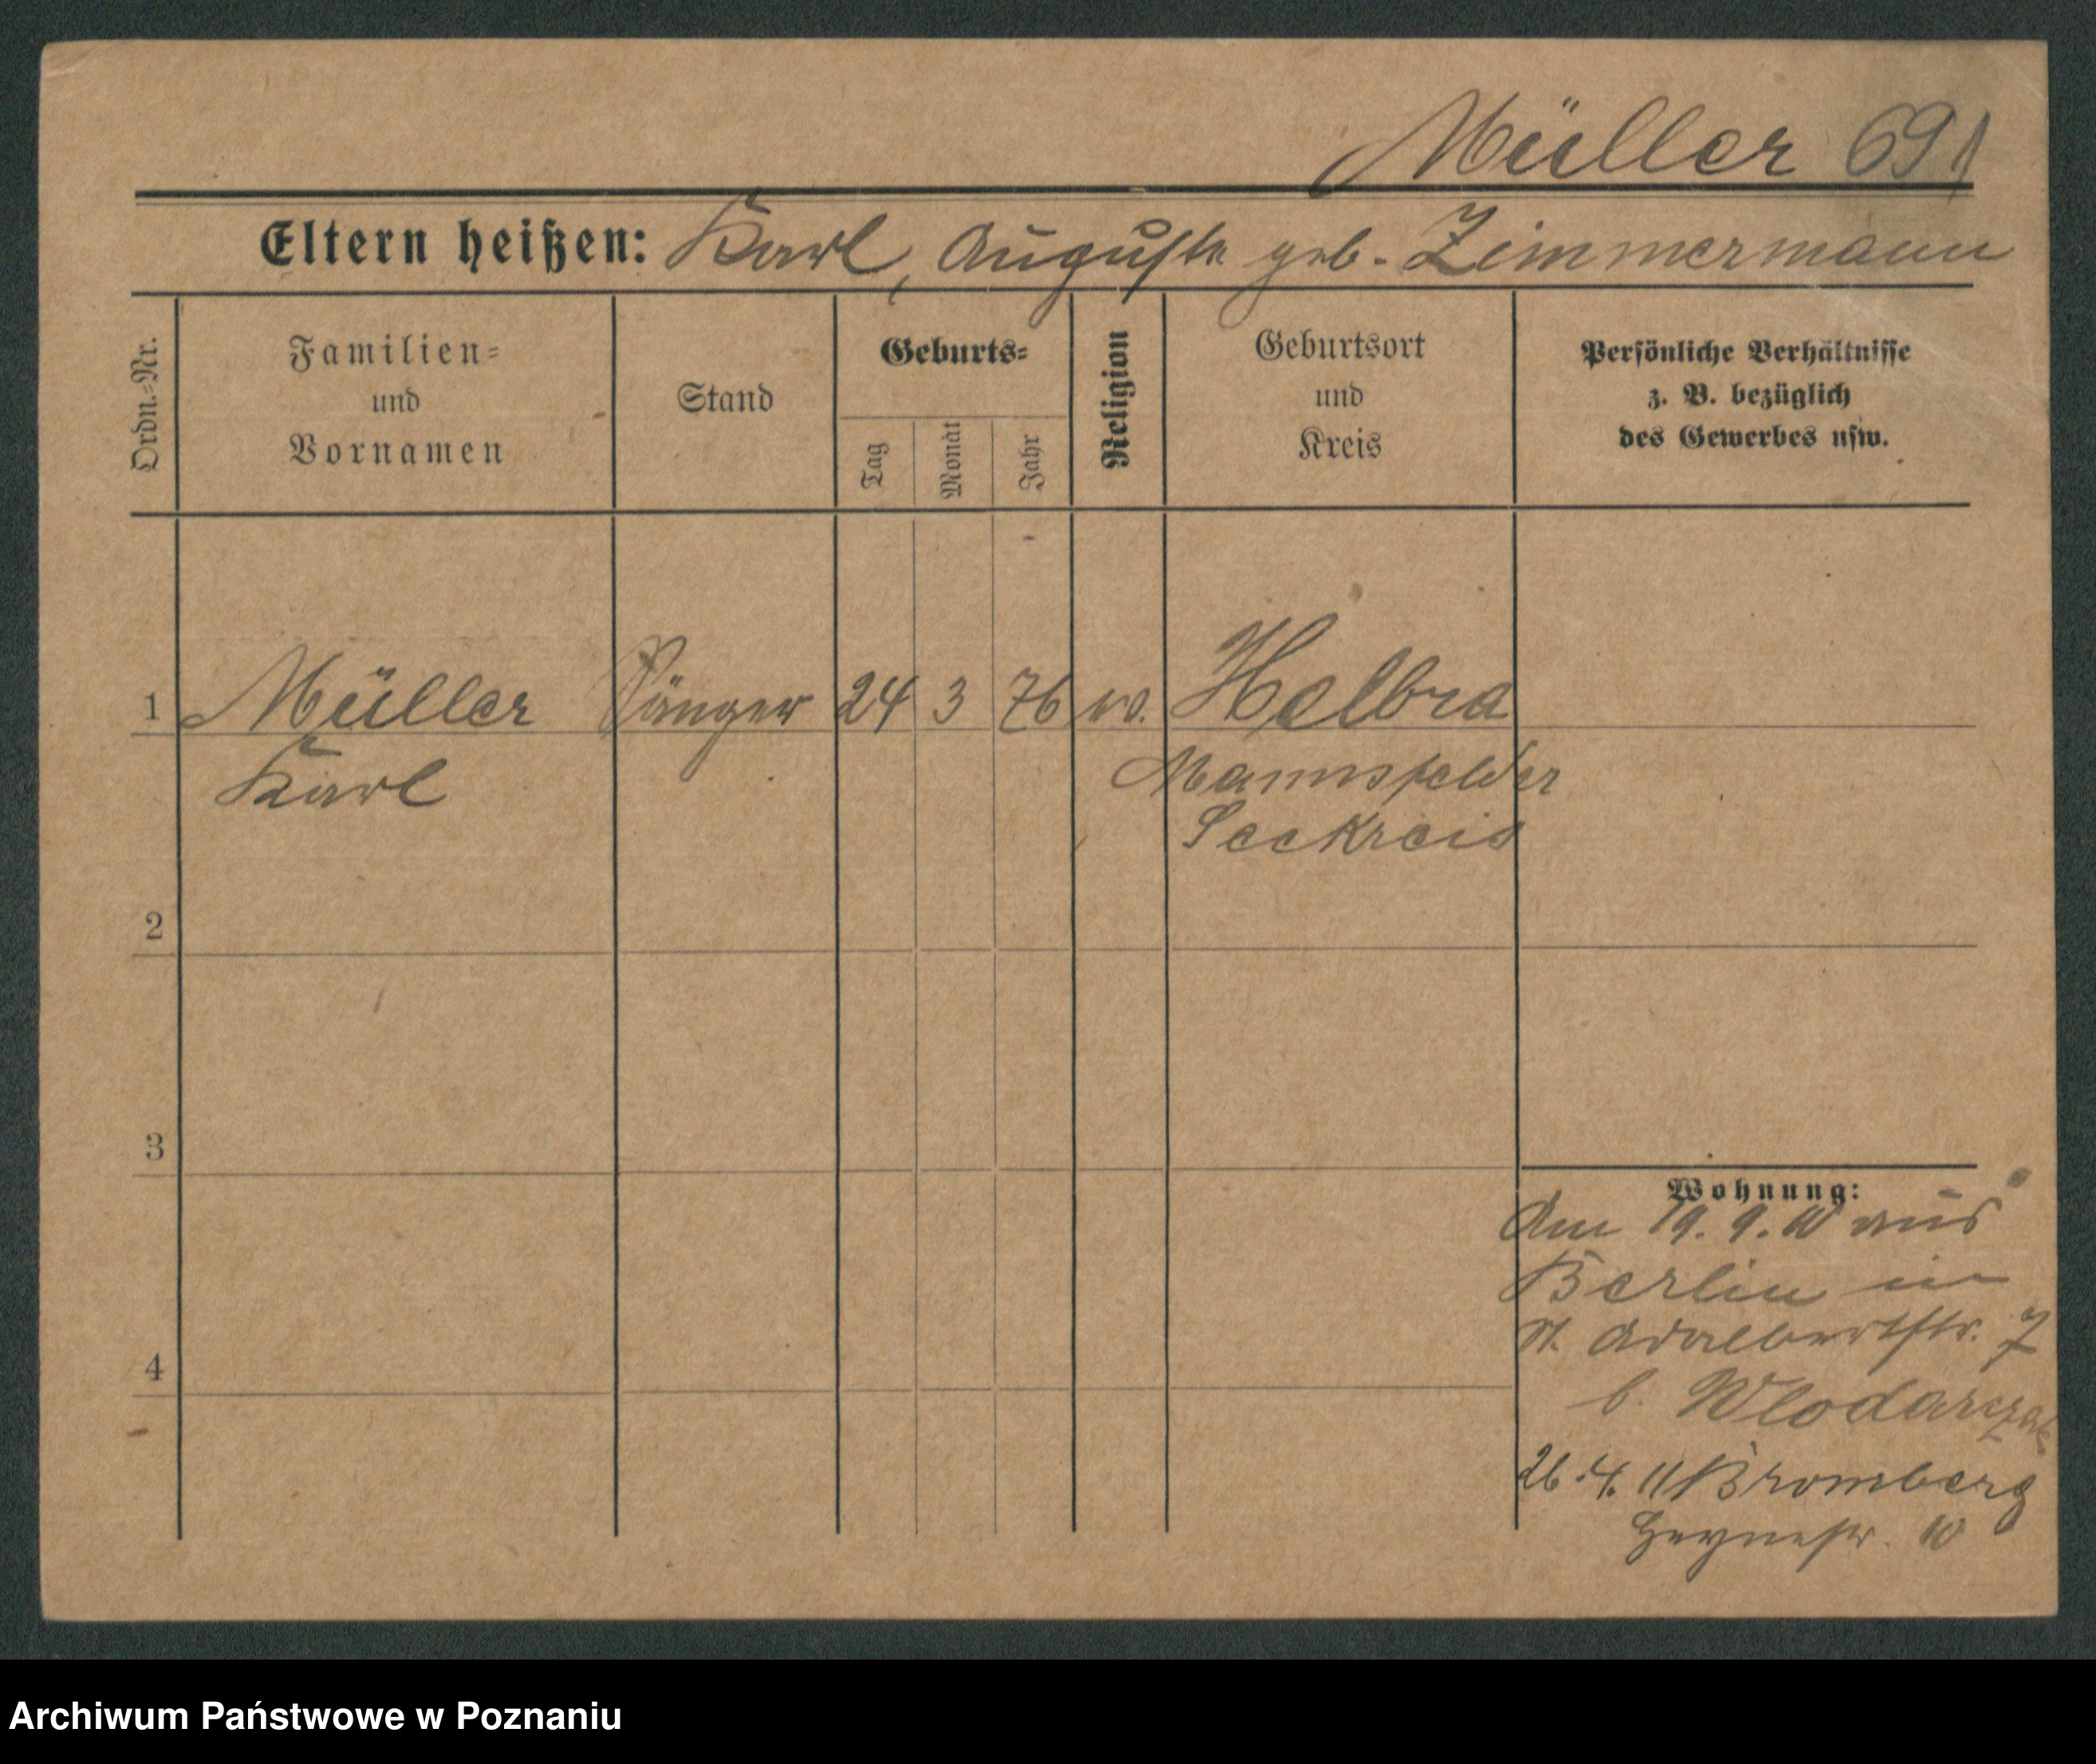 Müller 691
Eltern heißen: Karl, Auguste geb. Zimmermann
Ordn.-Nr.
Familien-
und
Vornamen
Stand
Geburts-
Tag
Monat
Jahr
Religion
Geburtsort
und
Kreis
Persönliche Verhältnisse
z. B. bezüglich
des Gewerbes usw.
1 Müller Sänger 24 3 76 Helbra
Karl
Mannsfelder
Seekreis
2
3
4
Wohnung:
Am 19. 9. 10 aus
Berlin in
St. Adalbertstr. 7
b. Wlodarczak
26. 4. 11 Bromberg
10
Archiwum Państwowe w Poznaniu